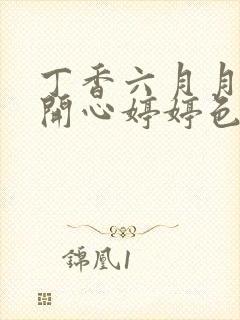 丁香六月月
開心婷婷色
錦凰1